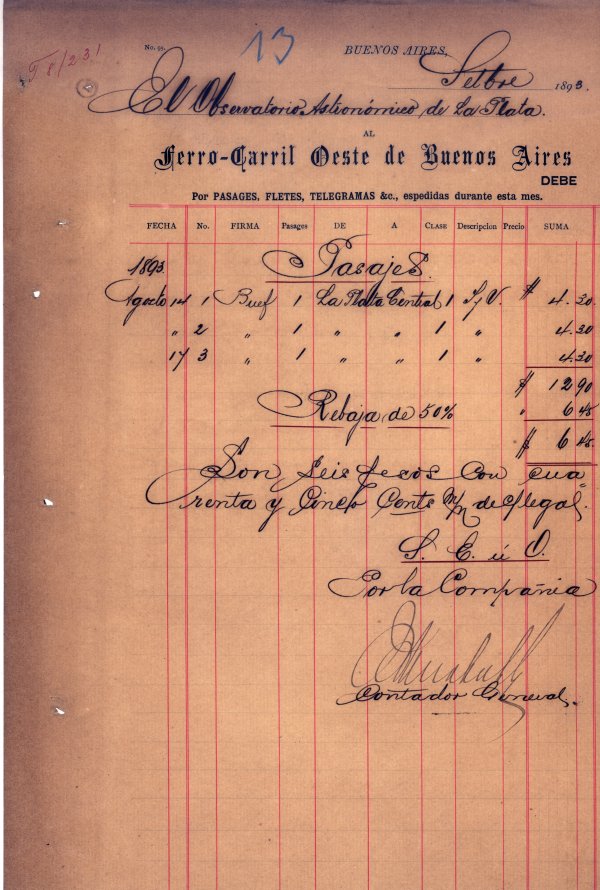 T 8/231
No. 95.
13
BUENOS AIRES,
Setbre 1893.
El Observatorio Astronómico de La Plata.
AL
Ferro-Carril Oeste de Buenos Aires
DEBE
Por PASAGES, FLETES, TELEGRAMAS &c., espedidas durante esta mes.
FECHA No. FIRMA Pasages DE A CLASE Descripcion Precio SUMA
1893. Pasajes.
Agosto 14 1 Buef 1 La Plata Central 1 I y V. $ 4.30
" 2 " 1 " " 1 " 4.30
17 3 " 1 " " 1 " 4.30
$ 12 90
Rebaja de 50% " 6 45
$ 6 45.
Son seis pesos con cua-
renta y cinco cents m/n de c/legal.
S. E. ú O.
Por la Compañia
Contador General.